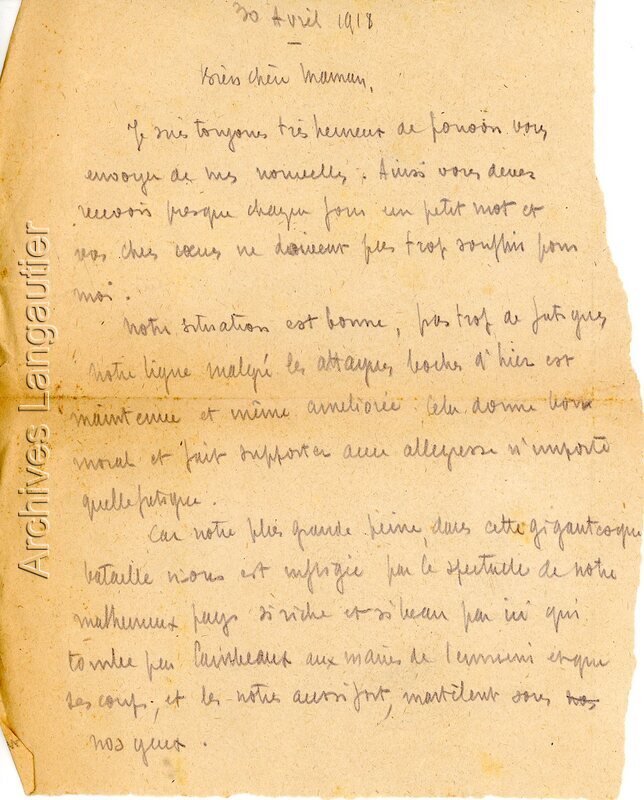 30 Avril 1918
Bien chère Maman,
Je suis toujours très heureux de pouvoir vous
envoyer de mes nouvelles. Ainsi vous devez
recevoir presque chaque jour un petit mot et
vos chers cœurs ne doivent pas trop souffrir pour
moi.
Notre situation est bonne, pas trop de fatigues
notre ligne malgré les attaques boches d'hier est
maintenue et même améliorée. Cela donne bon
moral et fait supporter avec allegresse n'importe
quelle fatigue.
Car notre plus grande peine, dans cette gigantesque
bataille nous est infligée par le spectacle de notre
malheureux pays si riche et si beau par ici qui
tombe par lambeaux aux mains de l'ennemi et que
ses coups, et les notres aussi fort, martèlent sous nos
nos yeux.
Archives Langautier